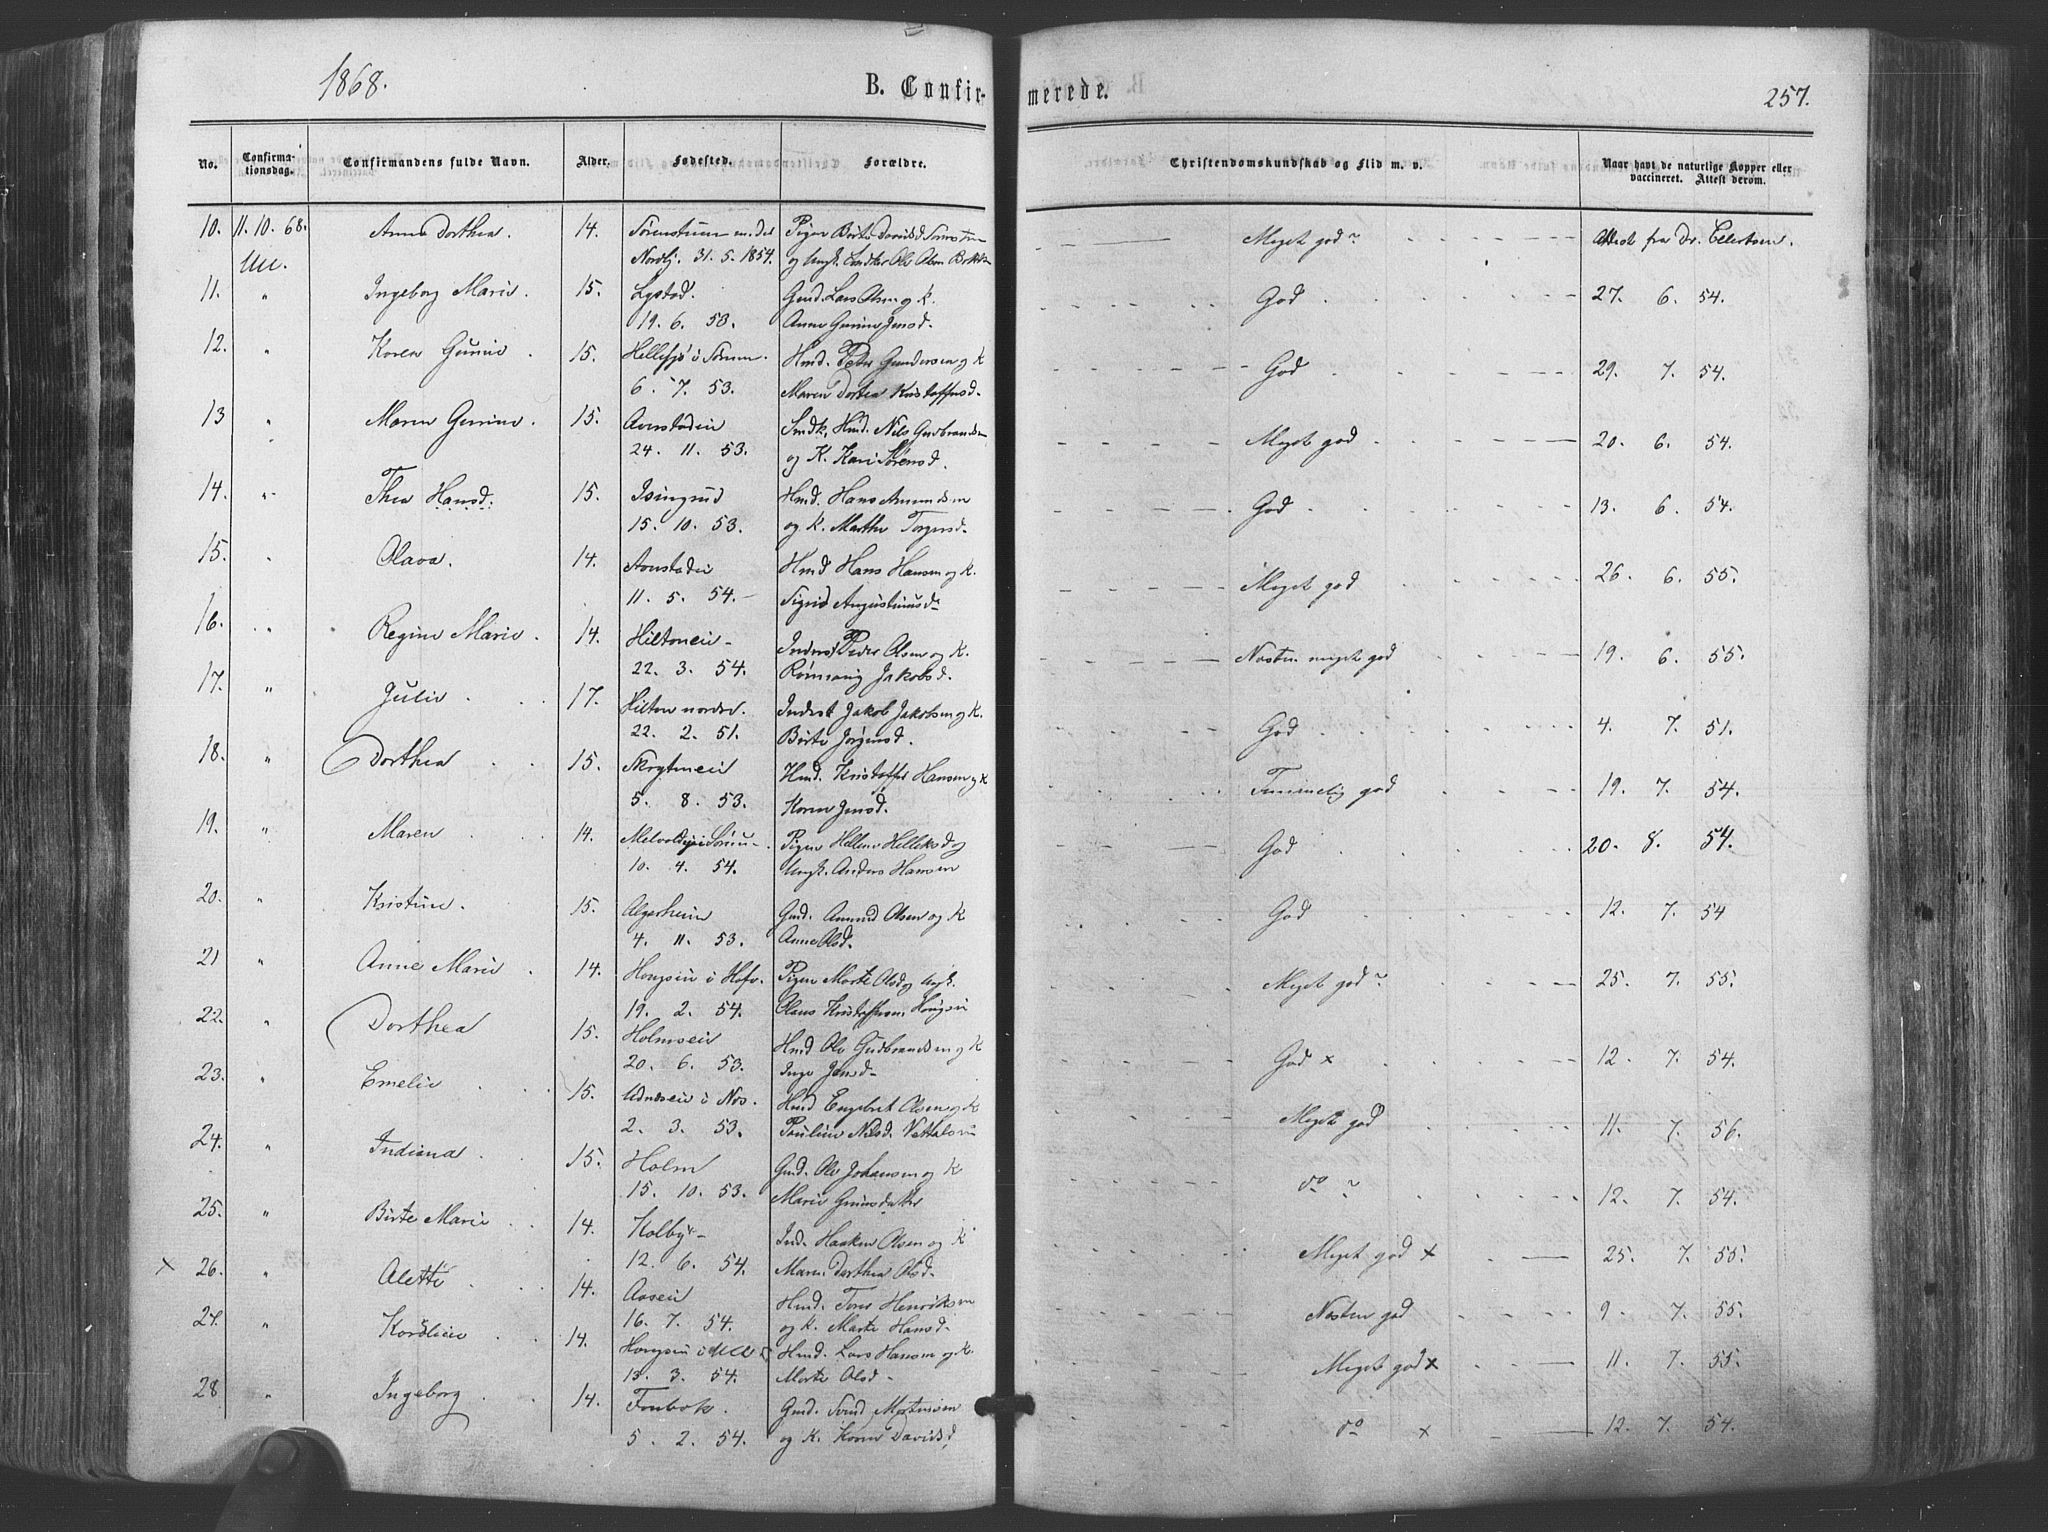 1868. B. Confirmerede. 257.
No. Confirmationsdag. Confirmandens fulde Navn. Alder. Fødested. Forældre. Christendomskundskab og Flid m. v. Naar havt de naturlige Kopper eller vaccineret. Attest derom.
10. 11. 10. 68. Anne Dorthea. 14. Pigen Birte Davidsd. Meget god Attest fra Dr.
Ull. Nordbj. 31. 5. 1854. og Ungk. Ole Olsen
11. " Ingeborg Marie. 15. Lystad. Gmd. Lars Olsen og K. God 27. 6. 54.
19. 6. 53. Anne Gurine Jensd.
12. " Karen Gurine 15. Hellesjø i Sørum. Hmd. Peder Gundersen og K God 29. 7. 54.
6. 7. 53. Maren Dortea Kristoffersd.
13 " Maren Gurine. 15. Hmd. Nils Gudbrandsen Meget god 20. 6. 54.
24. 11. 53. og K. Kari Sørensd.
14. " Thea Hansd. 15. Isingrud Hmd. Hans Amundsen God 13. 6. 54.
15. 10. 53. og K. Marthe Torgersd.
15. " Olava. 14. Hmd Hans Hansen og K. Meget god 26. 6. 55.
11. 5. 54. Sigrid Augustinusd.
16. " Regine Marie. 14. Hiltonei Inderst Peder Olsen og K. Næsten meget god 19. 6. 55.
22. 3. 54. Jakobsd.
17. " Julie. 17. Hilton nordre. Inderst Jakob Jakobsen og K. God 4. 7. 51.
22. 2. 51. Birte Jørgensd.
18. " Dorthea 15. Hmd. Kristoffer Hansen og K Temmelig god 19. 7. 54.
5. 8. 53. Karen Jensd.
19. " Maren 14. Pigen Helene Helleksd og God 20. 8. 54.
10. 4. 54. Ungk. Anders Hansen
20. " Kristine. 15. Algarheim Gmd. Amund Olsen og K God 12. 7. 54
4. 11. 53. Anne Olsd.
21 " Anne Marie 14. Pigen Marte Olsd og Ungk. Meget god 25. 7. 55.
19. 2. 54. Olaus Kristoffersen
22. " Dorthea 15. Holmseie Hmd Ole Gudbrandsen og K God x 12. 7. 54.
20. 6. 53. Inge Jensd
23. " Emelie 15. i Nes. Hmd Engebret Olsen og K Meget god 11. 7. 56.
2. 3. 53. Pauline Nilsd.
24. " Indiana. 15. Holm Gmd. Ole Johansen og K do 12. 7. 54.
15. 10. 53. Marie
25. " Birte Marie 14. Kolby Ind. Haaken Olsen og K Meget god x 25. 7. 55.
12. 6. 54. Maren Dorthea Olsd.
x 26. " Alette 14. Aaseie Hmd. Henriksen Næsten god 9 7. 55.
16. 7. 54. og K. Marte Hansd.
27. " Karoline 14. Hmd. Lars Hansen og K. Meget god x 11. 7. 55.
13. 3. 54. Marte Olsd
28 " Ingeborg 14. Fonbæk. Gmd. Svend do x 12. 7. 54.
5. 2. 54. og K. Karen Davidsd.